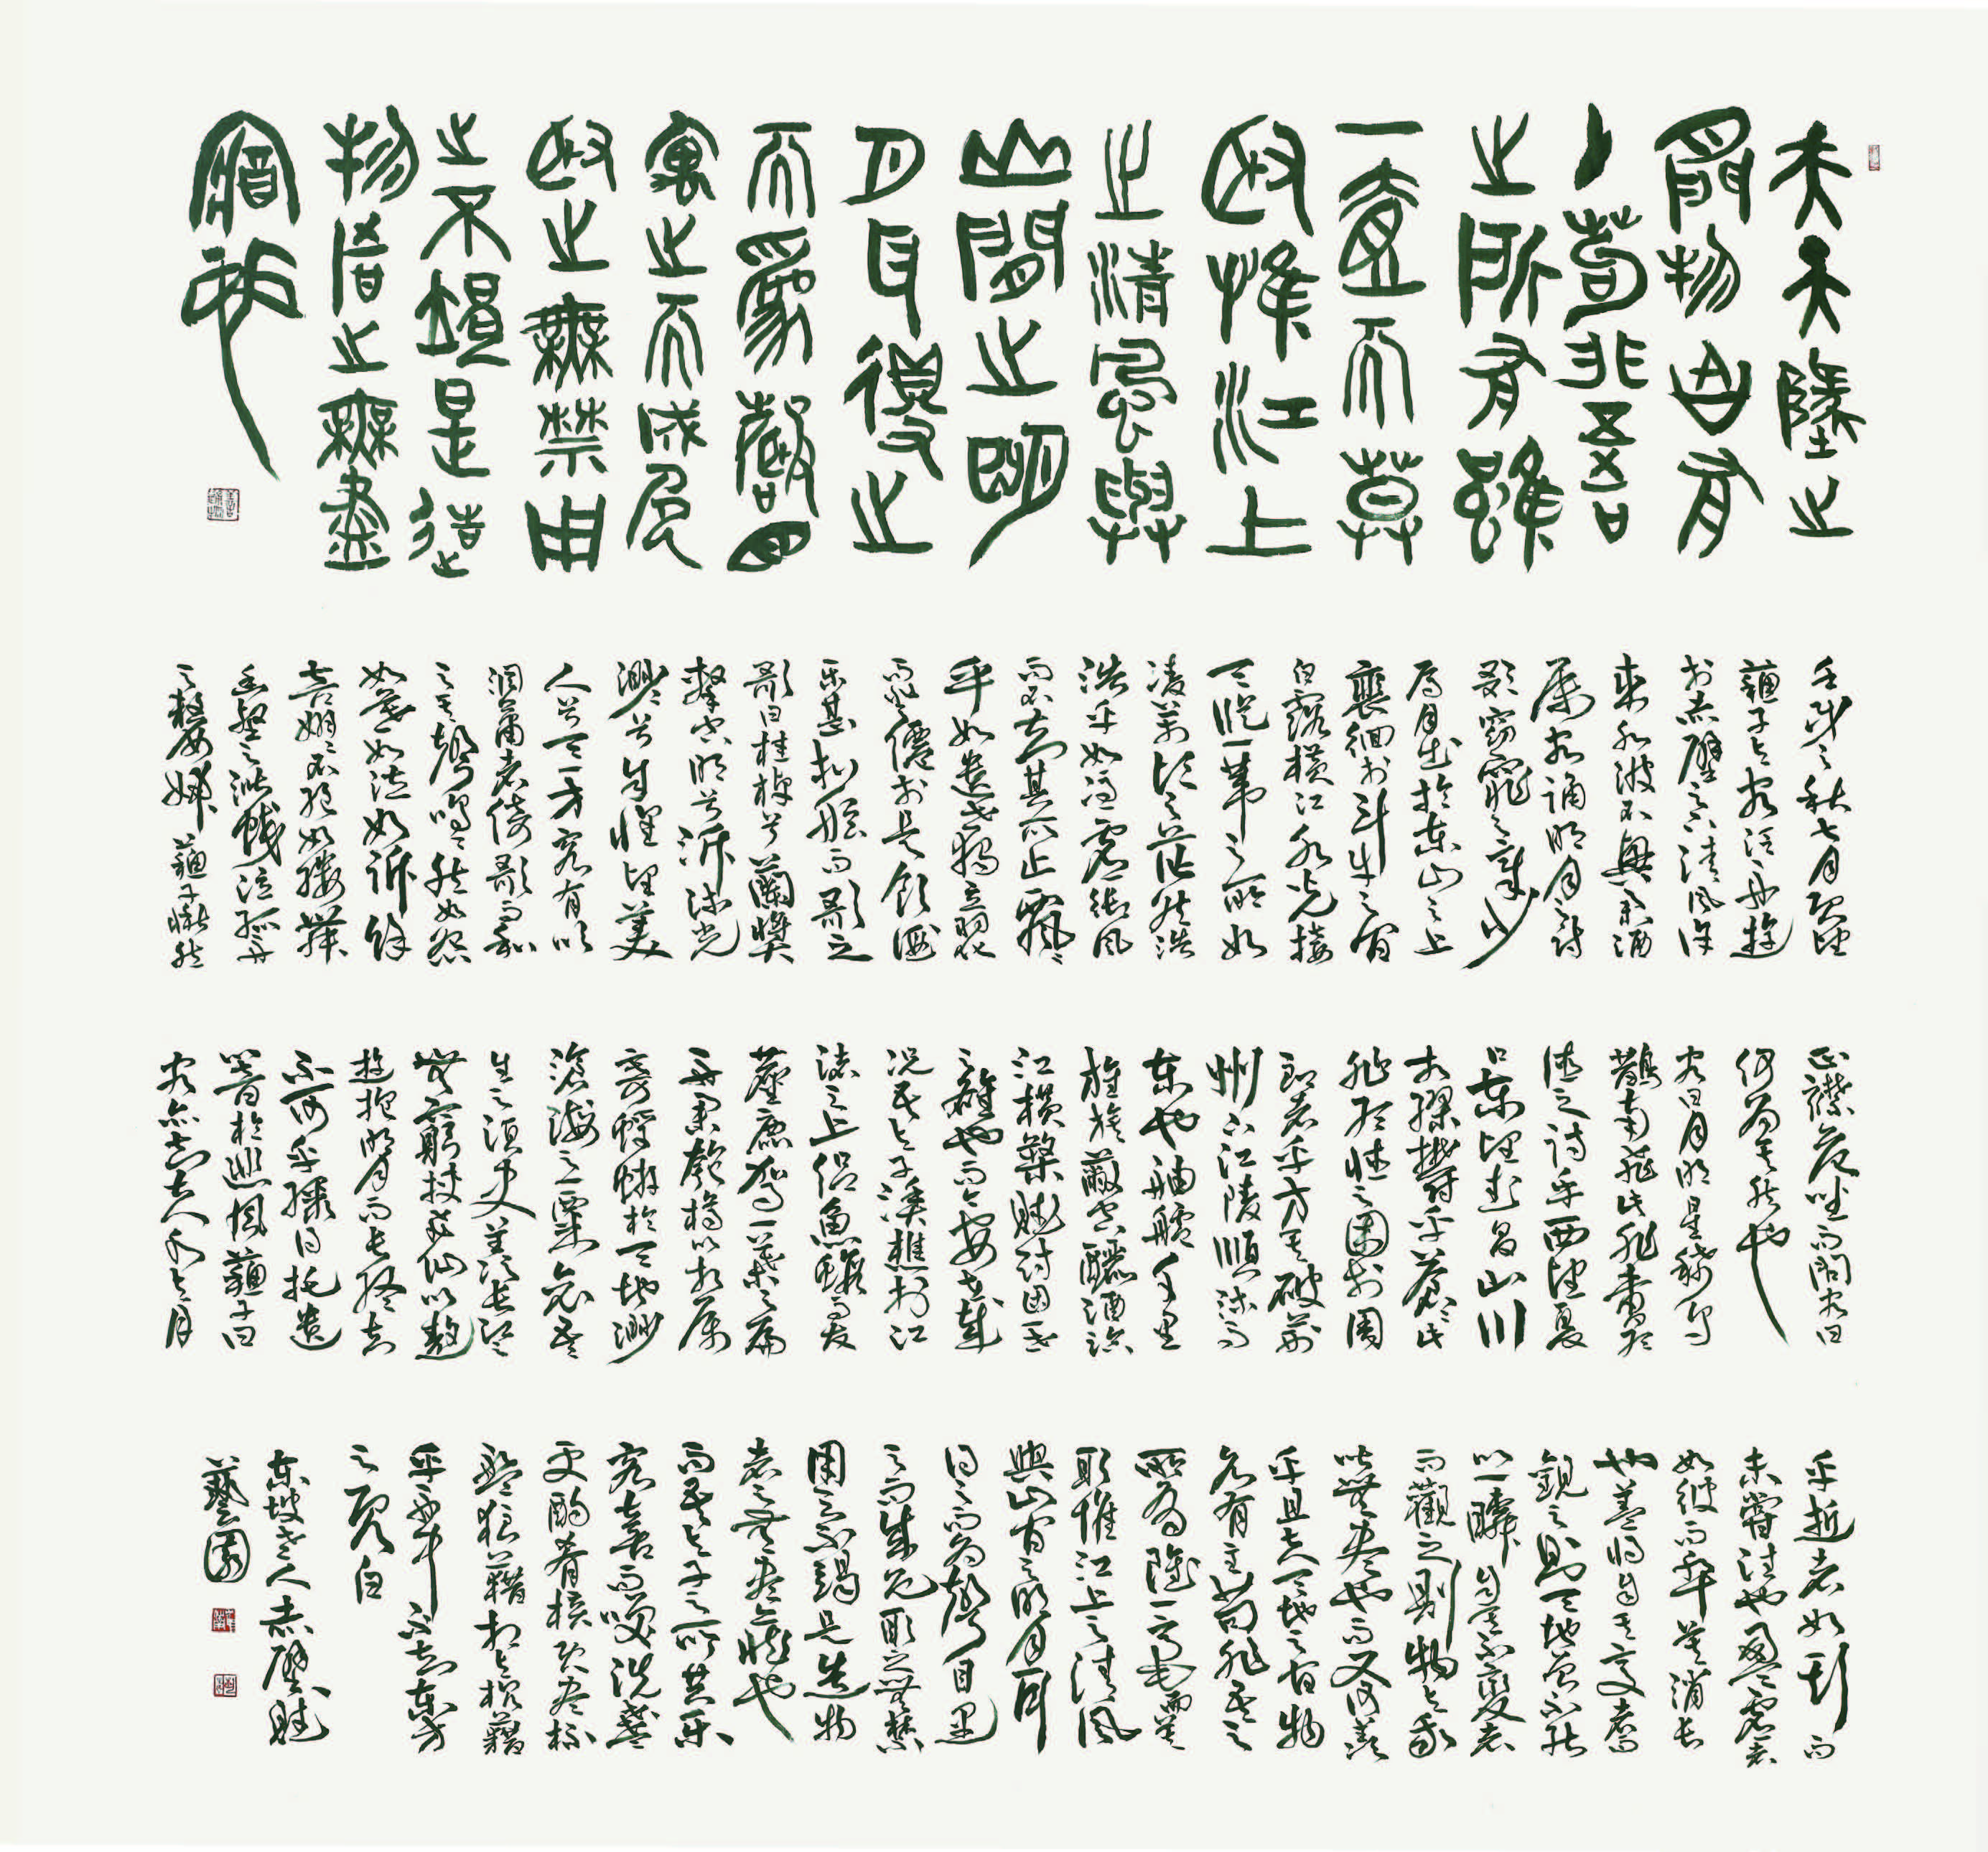 夫天墬之
間物各有
主苟非吾
之所有雖
一毫而莫
取惟江上
之清風與
山間之明
月耳得之
而為聲目
寓之而成色
取之無禁用
之不竭是造
物者之無盡
藏也
壬戌之秋七月既望
蘇子與客泛舟遊
於赤壁之下清風徐
來水波不興舉酒
屬客誦明月之詩
歌窈窕之章少
焉月出於東山之上
裵徊於斗牛之間
白露橫江水光接
天縱一葦之所如
凌萬頃之茫然浩
浩乎如馮虛御風
而不知其所止飄飄
乎如遺世獨立羽化
而登僊於是飲酒
樂甚扣舷而歌之
歌曰桂棹兮蘭槳
擊空明兮泝流光
渺渺兮予懷望美
人兮天一方客有吹
洞簫者倚歌而和
之其聲嗚嗚然如怨
如慕如泣如訴餘
音嫋嫋不絕如縷舞
幽壑之潛蛟泣孤舟
之嫠婦蘇子愀然
正襟危坐而問客曰
何為其然也
客曰月明星稀烏
鵲南飛此非曹孟
德之詩乎西望夏
口東望武昌山川
相繆鬱乎蒼蒼此
非孟德之困於周
郎者乎方其破荊
州下江陵順流而
東也舳艫千里
旌旗蔽空釃酒臨
江橫槊賦詩固一世
之雄也而今安在哉
況吾與子漁樵於江
渚之上侶魚蝦而友
麋鹿駕一葉之扁
舟舉匏樽以相屬
寄蜉蝣於天地渺
滄海之一粟哀吾
生之須臾羨長江
無窮挾飛仙以遨
遊抱明月而長終知
不可乎驟得託遺
響於悲風蘇子曰
客亦知夫水與月
乎逝者如斯而
未嘗往也盈虛者
如彼而卒莫消長
也蓋將自其變者而
觀之則天地曾不能
以一瞬自其不變者
而觀之則物與我
皆無盡也而又何羨
乎且夫天地之間物
各有主苟非吾之
所有雖一毫而莫
取惟江上之清風
與山間之明月耳
得之而為聲目遇
之而成色取之無禁
用之不竭是造物
者之無盡藏也
而吾與子之所共樂
客喜而笑洗盞
更酌肴核既盡杯
盤狼藉相與枕藉
乎舟中不知東方
之既白
東坡老人赤壁賦
藝園